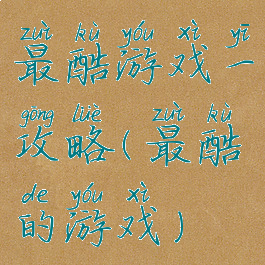 zuì kù yóu xì yī
最酷游戏一
gōng lüè zuì kù
攻略(最酷
de yóu xì
的游戏)